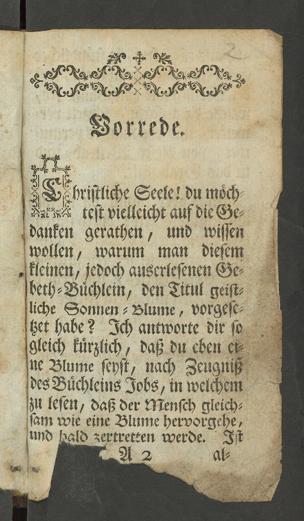 2
Vorrede.
Christliche Seele! du möch⸗
test vielleicht auf die Ge⸗
danken gerathen, und wissen
wollen, warum man diesem
kleinen, jedoch auserlesenen Ge⸗
beth⸗Büchlein, den Titul geist⸗
liche Sonnen⸗Blume, vorgese⸗
tzet habe? Ich antworte dir so
gleich kürzlich, daß du eben ei⸗
ne Blume seyst, nach Zeugniß
des Büchleins Jobs, in welchem
zu lesen, daß der Mensch gleich⸗
sam wie eine Blume hervorgehe,
und bald zertretten werde. Ist
A 2 al⸗